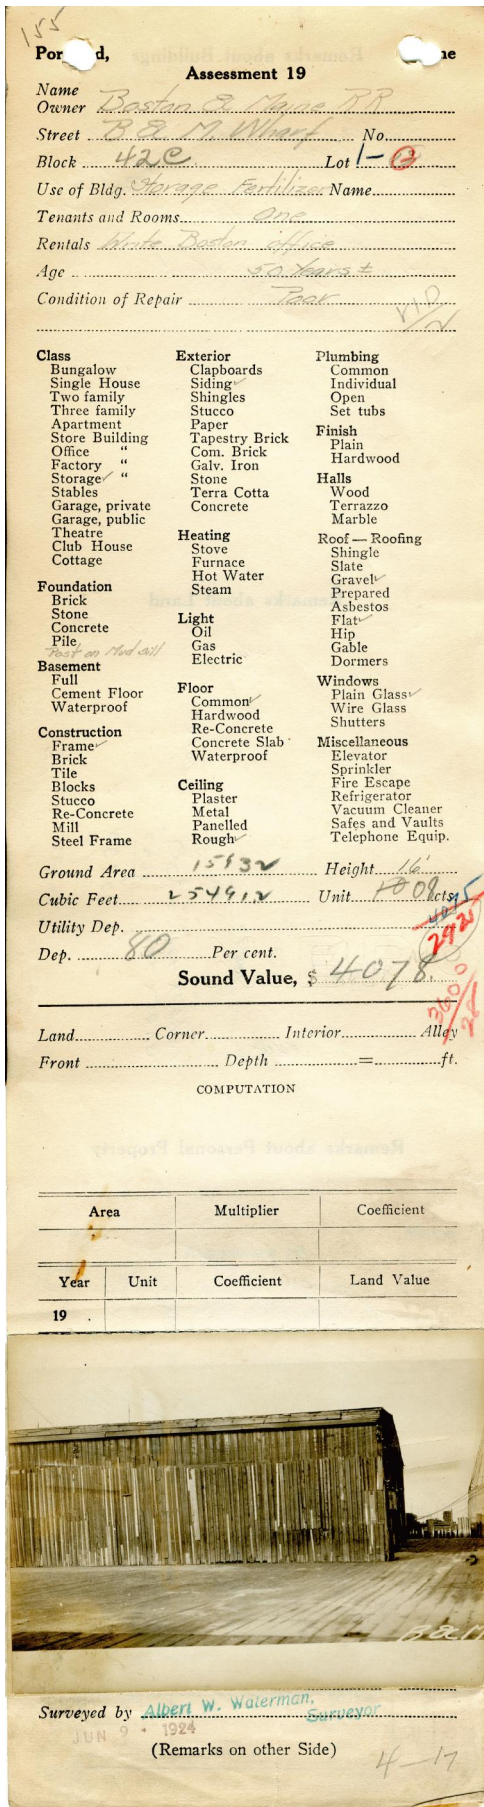 155
Por d, ne
Assessment 19
Name
Owner Boston & Maine RR
Street B & M. Wharf No.
Block 42C Lot 1-3
Use of Bldg. Storage Fertilizer Name
Tenants and Rooms one
Rentals Write Boston office
Age 50 Years ±
Condition of Repair Poor
Class
Bungalow
Single House
Two family
Three family
Apartment
Store Building
Office "
Factory "
Storage ✓ "
Stables
Garage, private
Garage, public
Theatre
Club House
Cottage
Foundation
Brick
Stone
Concrete
Pile
Post on Mud sill
Basement
Full
Cement Floor
Waterproof
Construction
Frame ✓
Brick
Tile
Blocks
Stucco
Re-Concrete
Mill
Steel Frame
Exterior
Clapboards
Siding ✓
Shingles
Stucco
Paper
Tapestry Brick
Com. Brick
Galv. Iron
Stone
Terra Cotta
Concrete
Heating
Stove
Furnace
Hot Water
Steam
Light
Oil
Gas
Electric
Floor
Common ✓
Hardwood
Re-Concrete
Concrete Slab
Waterproof
Ceiling
Plaster
Metal
Panelled
Rough ✓
Plumbing
Common
Individual
Open
Set tubs
Finish
Plain
Hardwood
Halls
Wood
Terrazzo
Marble
Roof — Roofing
Shingle
Slate
Gravel ✓
Prepared
Asbestos
Flat ✓
Hip
Gable
Dormers
Windows
Plain Glass ✓
Wire Glass
Shutters
Miscellaneous
Elevator
Sprinkler
Fire Escape
Refrigerator
Vacuum Cleaner
Safes and Vaults
Telephone Equip.
Ground Area 15932 Height 16'
Cubic Feet 254912 Unit 08 cts.
Utility Dep.
Dep. 80 Per cent.
Sound Value, $ 4078.
3600/28
Land Corner Interior Alley
Front Depth = ft.
COMPUTATION
Area Multiplier Coefficient
Year Unit Coefficient Land Value
19 .
B & M
Surveyed by Albert W. Waterman,
Surveyor
JUN 9 · 1924
(Remarks on other Side)
4-17